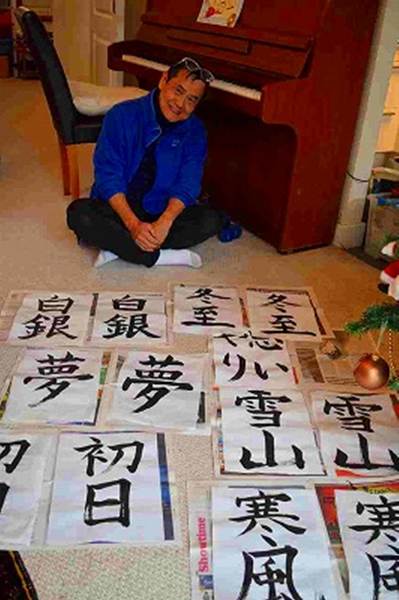 白銀
白銀
冬至
冬至
夢
夢
雪山
雪山
初日
寒風
寒風
Showtime